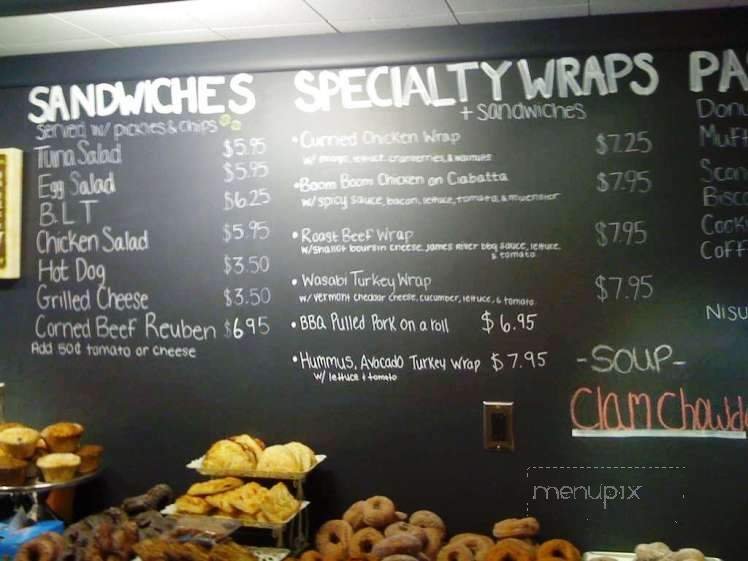 SANDWICHES
Served w/ pickles & chips
Tuna Salad $5.95
Egg Salad $5.95
B.L.T $6.25
Chicken Salad $5.95
Hot Dog $3.50
Grilled Cheese $3.50
Corned Beef Reuben $6.95
Add 50¢ tomato or cheese
SPECIALTY WRAPS
+ sandwiches
• Curried Chicken Wrap $7.25
w/ mango, lettuce, cranberries, & walnuts
• Boom Boom Chicken on Ciabatta $7.95
w/ spicy sauce, bacon, lettuce, tomato, & muenster
• Roast Beef Wrap $7.95
w/ shallot boursin cheese, James River bbq sauce, lettuce,
& tomato
• Wasabi Turkey Wrap $7.95
w/ vermont cheddar cheese, cucumber, lettuce, & tomato
• BBQ Pulled Pork on a roll $6.95
• Hummus, Avocado Turkey Wrap $7.95
w/ lettuce + tomato
PA
Don
Muff
Scon
Bisc
Cook
Coff
NISU
-SOUP-
Clam Chowd
menupix